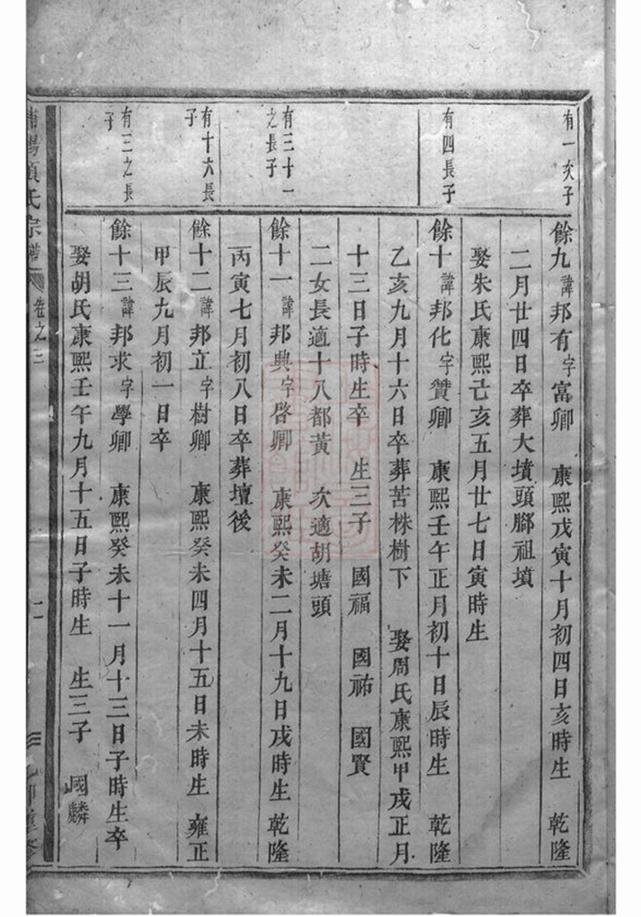 有一次子
餘九諱邦有字富卿 康熙戊寅十月初四日亥時生 乾隆
二月廿四日卒葬大墳頭腳祖墳
娶朱氏康熙己亥五月廿七日寅時生
有四長子
餘十諱邦化字贊卿 康熙壬午正月初十日辰時生 乾隆
乙亥九月十六日卒葬苦株樹下 娶周氏康熙甲戌正月
十三日子時生卒 生三子 國福 國祐 國賢
二女長適十八都黃 次適胡塘頭
有三十一
之長子
餘十一諱邦典字啓卿 康熙癸未二月十九日戌時生 乾隆
丙寅七月初八日卒葬壇後
有十六長
子
餘十二諱邦立字樹卿 康熙癸未四月十五日未時生 雍正
甲辰九月初一日卒
有三之長
子
餘十三諱邦求字學卿 康熙癸未十一月十三日子時生卒
娶胡氏康熙壬午九月十五日子時生 生三子 國麟
氏宗譜 卷之三